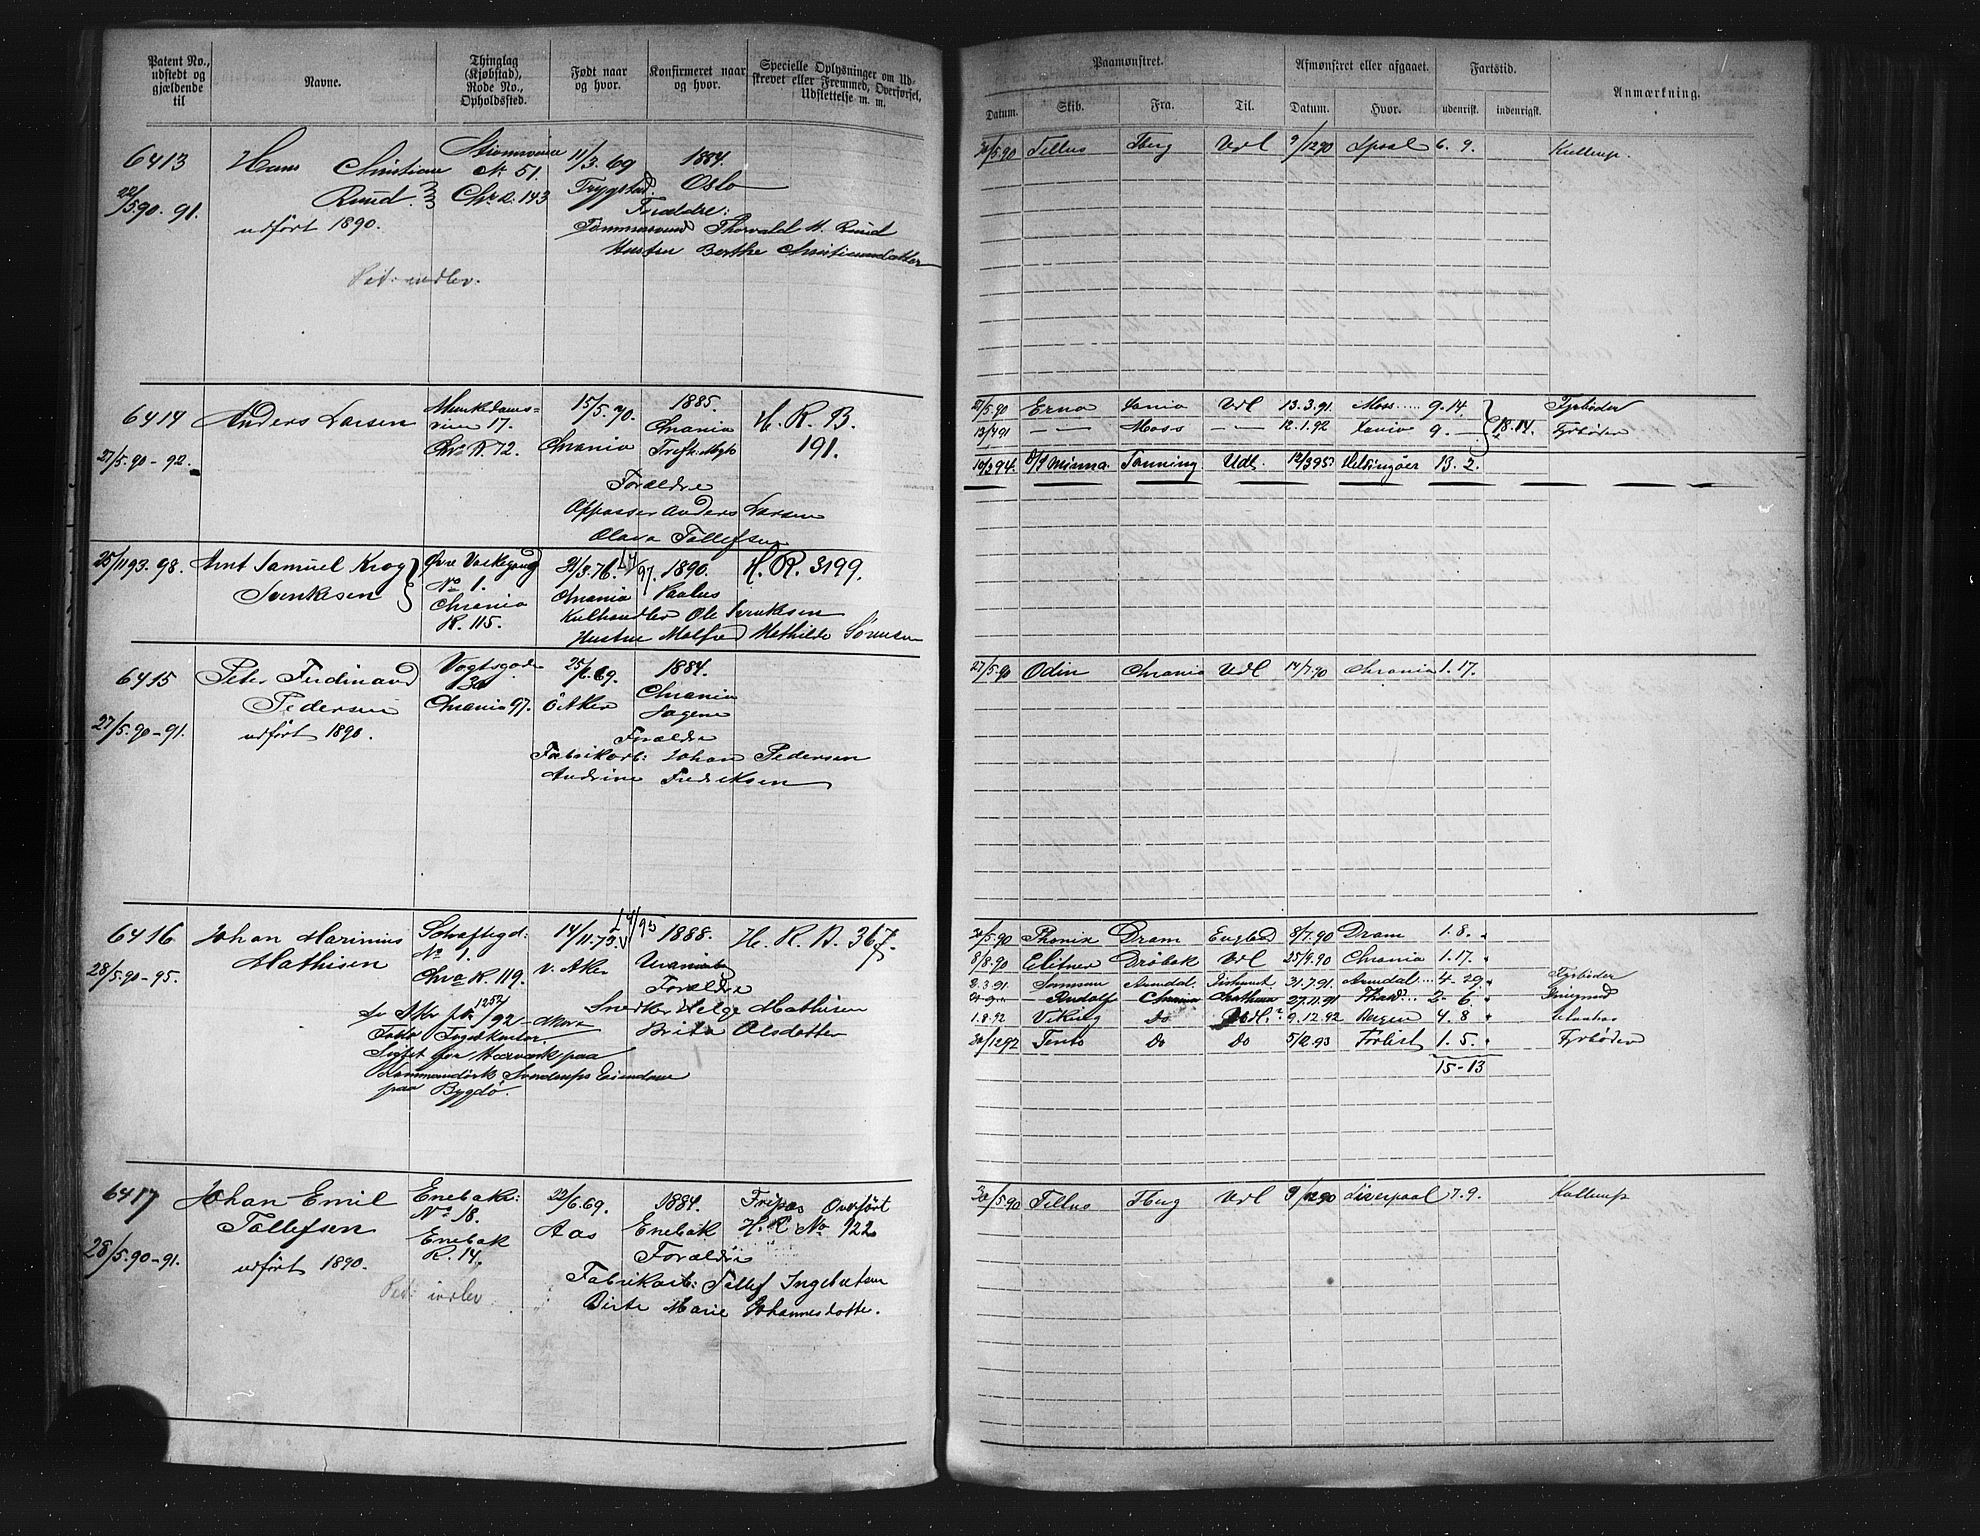 Patent No., udstedt og gjældende til
Navne.
Thinglag (Kjøbstad), Rode No., Opholdssted.
Født naar og hvor.
Konfirmeret naar og hvor.
Specielle Oplysninger om Udskrevet eller Fremmed, Overførsel, Udslettelse m. m.
Paamønstret.
Afmønstret eller afgaaet.
Fartstid.
Anmærkning.
Datum. Skib. Fra. Til. Datum. Hvor. udenrigst. indenrigst.
6413 Hans Christian 11/3.69 1884.
Ruud. No 51. Trygstad. Oslo
22/5.90-91. Chr.a. 143
udført 1890. Forældre:
Tømmermand Thorvald H. Ruud
Hustru Berthe Christiansdatter
Pat: indlev.
/5.90 Tellus Fberg Udl 9/12 90 6. 9.
6414 Anders Larsen Munkedamsvein 17. 15/5.70. 1885. H. R. B.
27/5.90-92. Chra R. 72. Chrania Chrania 191.
Forældre
Oppasser Anders Larsen
Olava Tollefsen
27/5.90 Erna Xania Udl 13.3.91. Moss 9.14 Fyrbøder
13/4 91 — Moss — 12.1.92 Xania 9. — 18.14. Fyrbøder
10/3 94. D/S Minna. Tønning Udl. 12/3 95 Helsingøer 13. 2.
25/11 93. 98. Arnt Samuel Krog Øvre Voldgang 21/3.76. 97. 1890. H. R. 3199.
Svendsen No 1. Chrania Paulus
Chrania Kulhandler Ole Svendsen
R. 115. Hustru Malfred Mathilde Sørensen
6415 Peter Ferdinand Vogtsgade 25/6.69. 1884.
Pedersen 30 Chrania
27/5.90-91. Chrania 97. Ö. Aker Sagene
udført 1890. Forældre
Fabrikarb: Johan Pedersen
Andrine Fredriksen
27/5.90 Odin Chrania Udl 14/7.90 Chrania 1.17.
6416 Johan Marinius 14/11.73. 95 1888. H. R. A. 367.
Mathisen No 1. V. Aker Uranienb
28/5.90-95. Chra R. 119. Forældre
Snedker Helge Mathisen
Brita Olsdatter
paa Bygdø.
30/5.90 Phønix Dram England 8/7.90 Dram 1.8. "
8/8.90 Drøbak Udl 25/9.90 Chrania 1.17. "
2.3.91. Samson Arendal. 31.7.91. Arendal 4-29. " Fyrbøder
Rudolf Chrania 27.11.91 2-6. "
1.8.92 Viking Do Udl. 9.12.92 Bergen 4.8 "
30/12 92 Tento Do Do 5/12.93 Forlist 1. 5. " Fyrbøder
15-13
6417 Johan Emil Enebak: 22/6.69. 1884. Fripas Overført
Tollefsen No 18. Aas Enebak H. R No 122
28/5.90-91. Enebak R. 14. Forældre
udført 1890. Fabrikarb: Tollef Ingebretsen
Pat: indlev. Birte Marie Johannesdatter.
30/5.90 Tellus Fberg Udl 9/12 90 Liverpool 7.9.